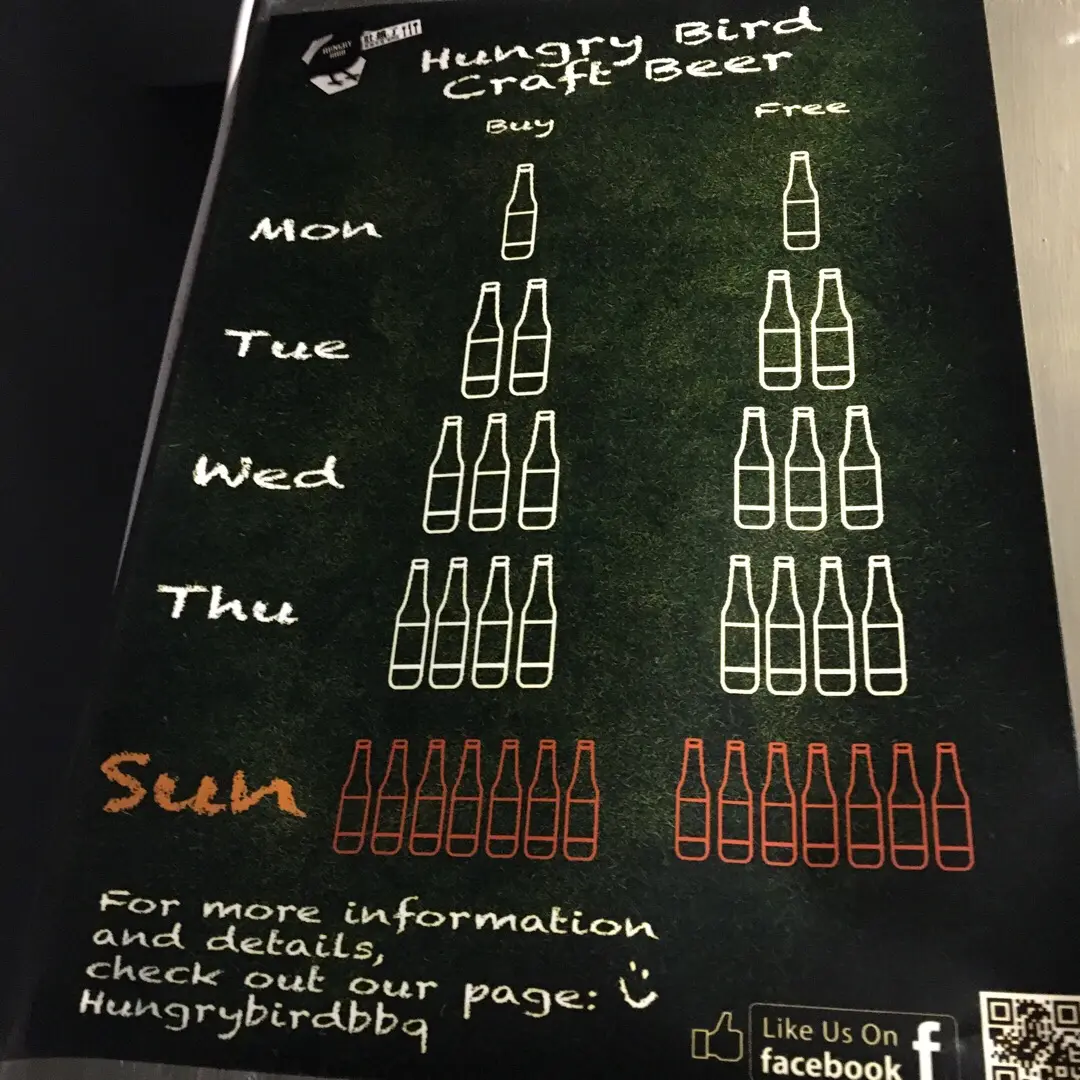 HUNGRY
BIRD
Hungry Bird
Craft Beer
Buy
Free
Mon
Tue
Wed
Thu
Sun
For more information
and details,
check out our page:
Hungrybirdbbq
Like Us On
facebook
f